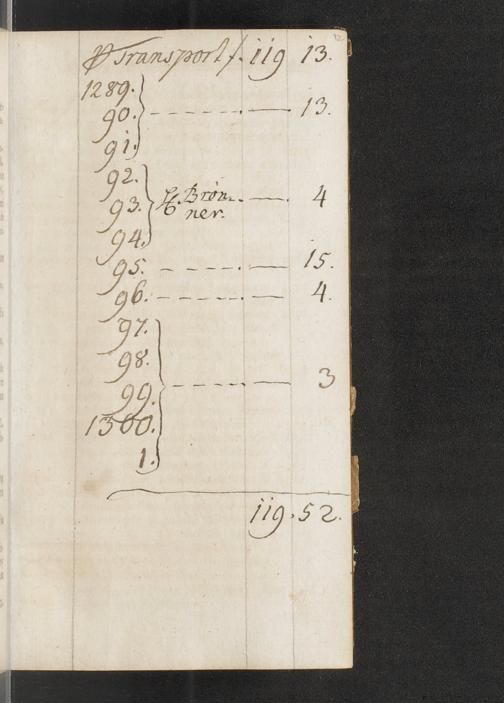 Transport f. 119 13.
1289.
90. - - - - - . — 13.
91.
92.
93. H. Brön- . — 4
ner.
94.
95. - - - - . — 15.
96. - - - - . — 4.
97.
98.
99. - - - - - . — 3
1300.
1.
119. 52.